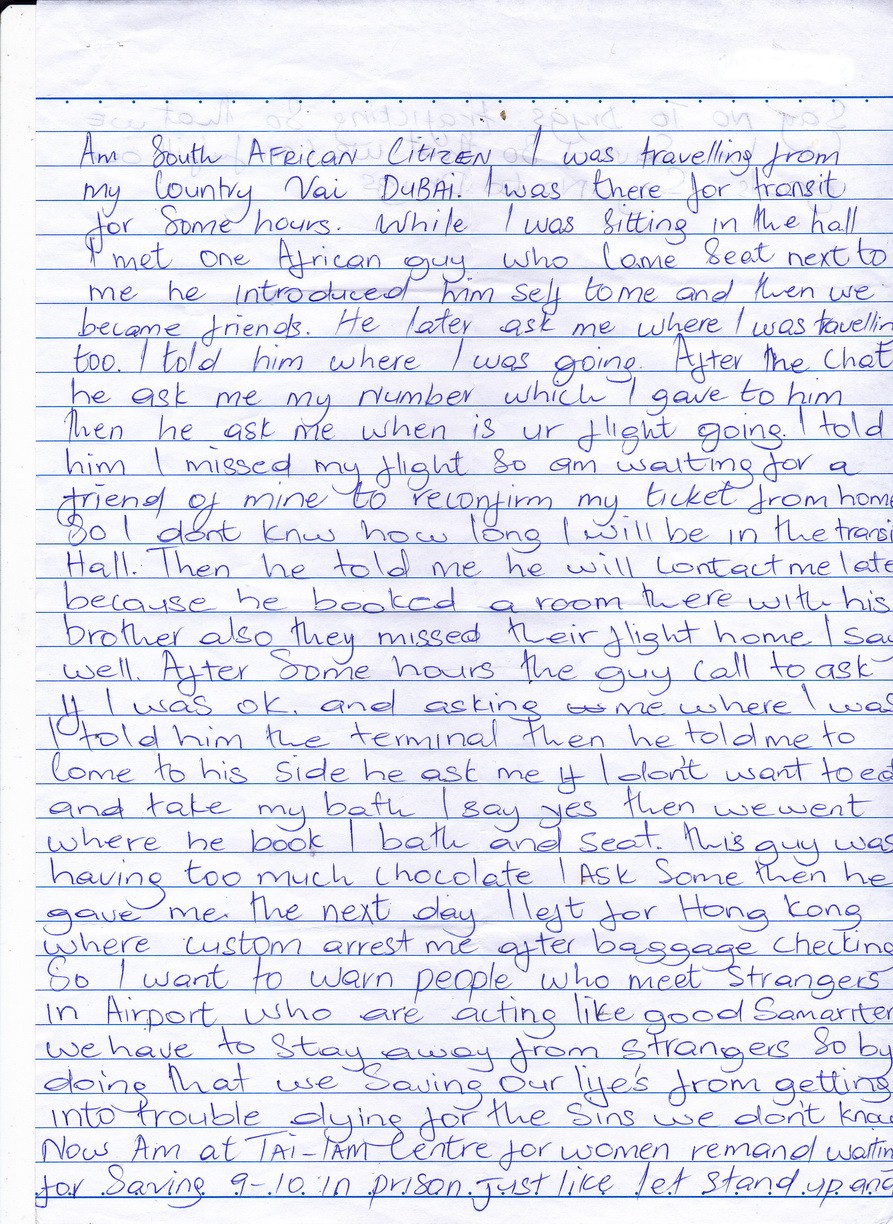 Am South AFRICAN CITIZEN I was travelling from
my Country Vai DUBAI. I was there for transit
for Some hours. While I was sitting in the hall
I met one African guy who Came Seat next to
me he introduced him self to me and then we
became friends. He later ask me where I was travellin
too. I told him where I was going. After the Chat
he ask me my Number which I gave to him
Then he ask me when is ur flight going. I told
him I missed my flight So am waiting for a
friend of mine to reconfirm my ticket from home
So I dont knw how long I will be in the transi
Hall. Then he told me he will Contact me late
because he booked a room there with his
brother also they missed their flight home I sa
well. After Some hours the guy Call to ask
If I was ok. and asking me where I was
I told him the terminal then he told me to
Come to his side he ask me If I don't want to ea
and take my bath I say yes then we went
where he book I bath and seat. This guy was
having too much chocolate I Ask Some then he
gave me. the next day I left for Hong Kong
where custom arrest me after baggage checking
So I want to warn people who meet Strangers
in Airport who are acting like good Samariter
we have to Stay away from strangers So by
doing that we Saving Our life's from getting
into trouble dying for the Sins we don't know
Now Am at TAI-TAM Centre for women remand waitin
for Saving 9-10 in prison. Just like let stand up and